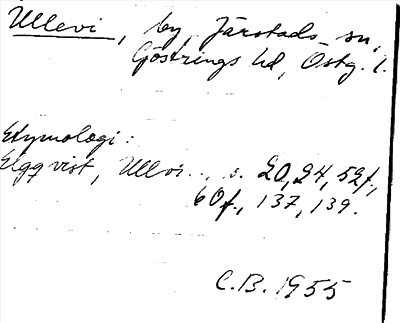 Ullevi, by, Järstads sn,
Göstrings hd, Östg. l.
Etymologi:
Elgqvist, Ullvi..., s. 20, 24, 52f.,
60f., 137, 139.
C.B. 1955